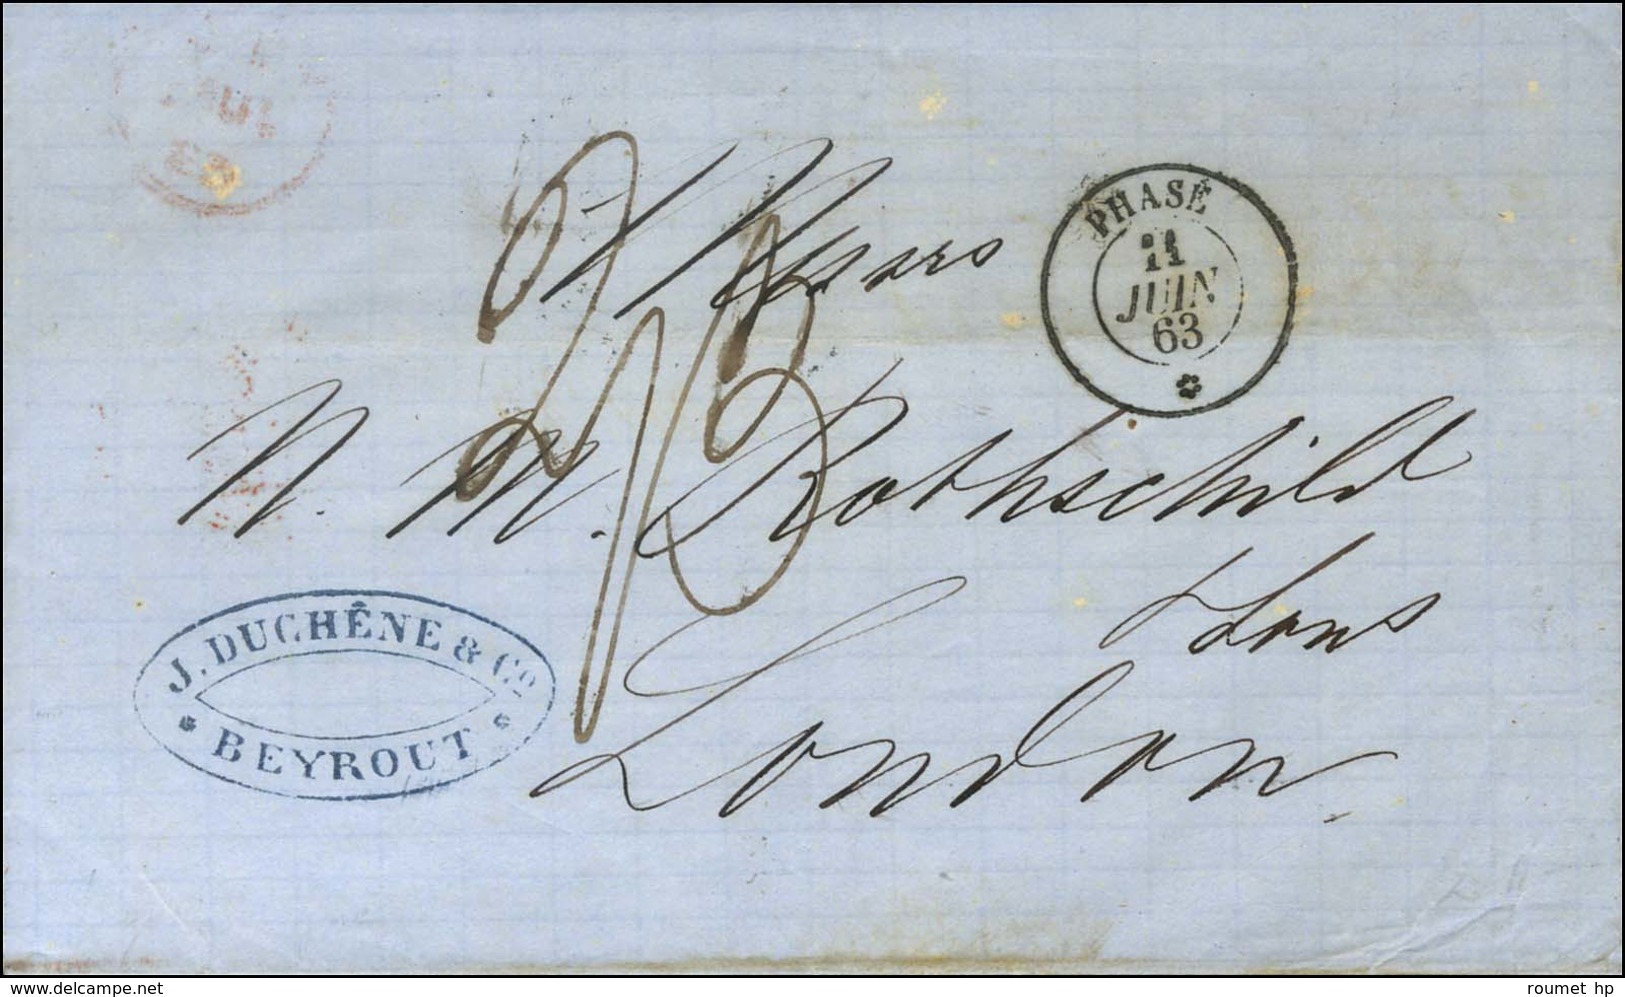 Messrs
PHASE
11
JUIN
63
N. M. Rothschild
& Sons
London.
J. DUCHÊNE & Co.
BEYROUT
www.delcampe.net
roumet hp